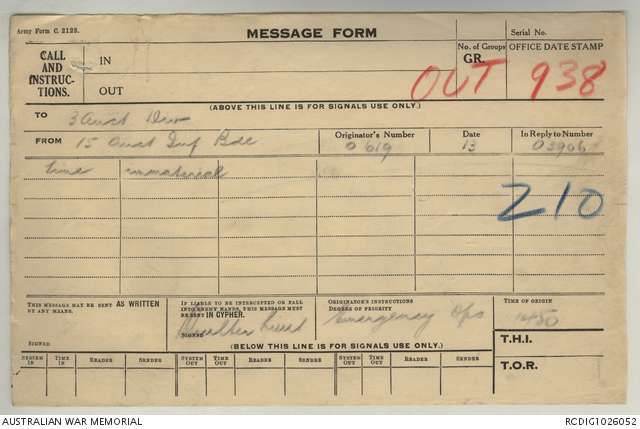 Army Form C. 2128.
MESSAGE FORM
Serial No.
CALL AND INSTRUCTIONS.
IN
OUT
No. of Groups GR.
OFFICE DATE STAMP
OUT 938
(ABOVE THIS LINE IS FOR SIGNALS USE ONLY.)
TO 3 Aust Div
FROM 15 Aust Inf Bde
Originator's Number 0619
Date 13
In Reply to Number 03906
time immaterial
210
THIS MESSAGE MAY BE SENT AS WRITTEN BY ANY MEANS.
SIGNED
IF LIABLE TO BE INTERCEPTED OR FALL INTO ENEMY HANDS, THIS MESSAGE MUST BE SENT IN CYPHER.
SIGNED
ORIGINATOR'S INSTRUCTIONS
DEGREE OF PRIORITY
emergency Ops
TIME OF ORIGIN
T.H.I.
T.O.R.
(BELOW THIS LINE IS FOR SIGNALS USE ONLY.)
SYSTEM IN TIME IN READER SENDER SYSTEM OUT TIME OUT READER SENDER SYSTEM OUT TIME OUT READER SENDER
AUSTRALIAN WAR MEMORIAL
RCDIG1026052